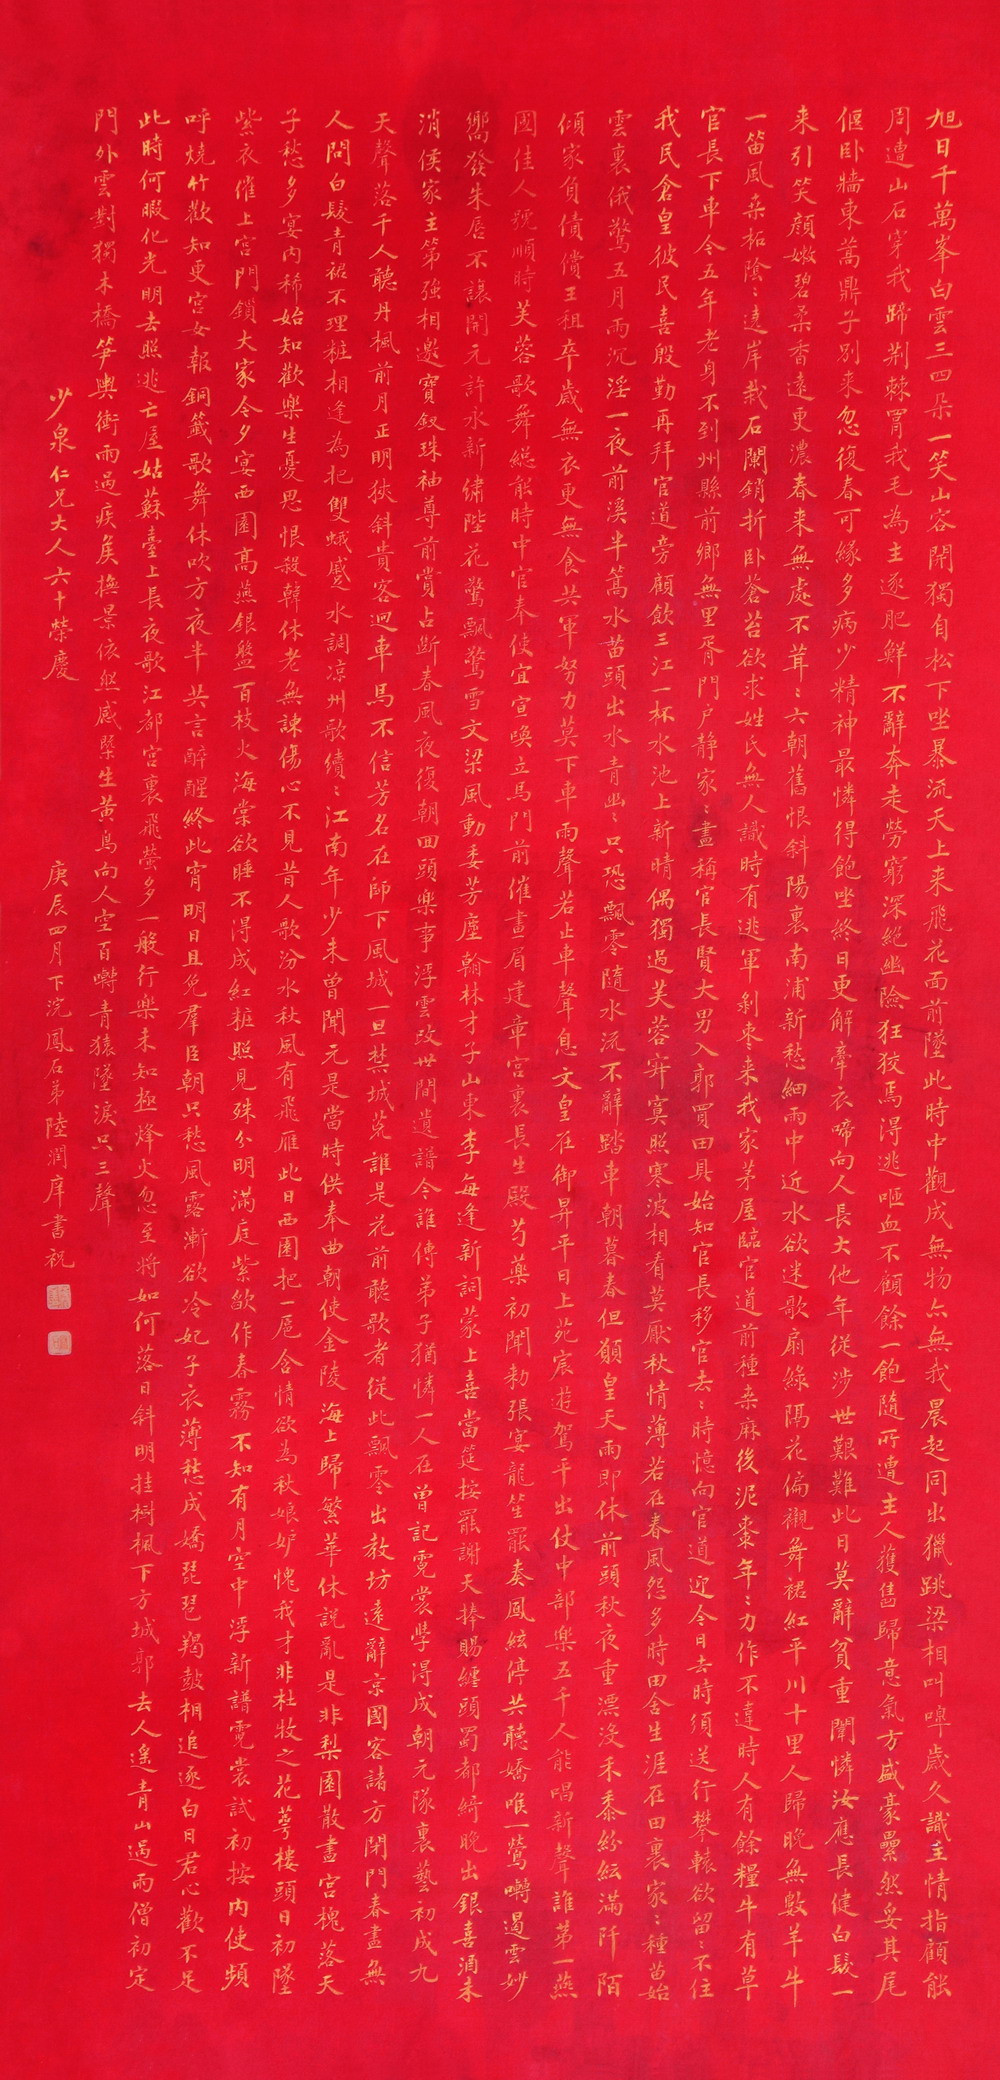 旭日千萬峯白雲三四朵一笑山容開獨自松下坐暴流天上來飛花面前墜此時中觀成無物亦無我晨起同出獵跳梁相叫嘷歲久識主情指顧能
周遭山石穿我蹄荆棘罥我毛為主逐肥鮮不辭奔走勞窮深絕幽險狂狡焉得逃咂血不顧餘一飽隨所遭主人獲雋歸意氣方盛豪纍然妥其尾
偃卧牆東蒿鼎子別来忽復春可緣多病少精神最憐得飽坐終日更解牽衣啼向人長大他年從涉世艱難此日莫辭貧重闈憐汝應長健白髮一
来引笑顏嫩碧柔香遠更濃春来無處不茸〻六朝舊恨斜陽裏南浦新愁細雨中近水欲迷歌扇綠隔花偏襯舞裙紅平川十里人歸晚無數羊牛
一笛風桑柘陰〻遶岸栽石闌銷折卧蒼苔欲求姓氏無人識時有逃軍剝棗来我家茅屋臨官道前種桑麻後泥棗年〻力作不違時人有餘糧牛有草
官長下車今五年老身不到州縣前鄉無里胥門戶靜家〻盡稱官長賢大男入郭買田具始知官長移官去〻時憶向官道迎今日去時須送行攀轅欲留〻不住
我民倉皇彼民喜殷勤再拜官道旁顧飲三江一杯水池上新晴偶獨過芙蓉寂寞照寒波相看莫厭秋情薄若在春風怨更多時田舍生涯在田裏家〻種苗始
雲裏俄驚五月雨沉淫一夜前溪半篙水苗頭出水青幽〻只恐飄零隨水流不辭踏車朝暮春但願皇天雨即休前頭秋夜重漂沒禾黍紛紜滿阡陌
傾家負債償王租卒歲無衣更無食共軍努力莫下車雨聲若止車聲息文皇在御昇平日上苑宸遊駕平出仗中部樂五千人能唱新聲誰第一燕
國佳人號順時芙蓉歌舞総能時中官奉使宜宣喚立馬門前催畫眉建章宮裏長生殿芍藥初開勅張宴龍笙罷奏鳳絃停共聽嬌喉一鶯囀遏雲妙
嚮發朱唇不讓開元許永新繡陛花驚飄驚雪文梁風動委芳塵翰林才子山東李每逢新詞蒙上喜當筵按罷謝天捧賜纏頭蜀都綺晚出銀喜酒未
消侯家主第強相邀寶釵珠袖尊前賞占斷春風夜復朝回頭樂事浮雲改世間遺譜今誰傳弟子猶憐一人在曾記霓裳學得成朝元隊裏藝初成九
天聲落千人聽丹楓前月正明狹斜貴客迴車馬不信芳名在師下風城一旦禁城荒誰是花前聽歌者從此飄零出教坊遠辭京國客諸方閉門春盡無
人問白髮青裙不理粧相逢為把雙蛾蹙水調涼州歌續〻江南年少未曾聞元是當時供奉曲朝使金陵海上歸繁華休説亂是非梨園散盡宮槐落天
子愁多宴內稀始知歡樂生憂思恨殺韓休老無諫傷心不見昔人歌汾水秋風有飛雁此日西園把一巵含情欲為秋娘妒愧我才非杜牧之花萼樓頭日初墜
紫衣催上宮門鎖大家今夕宴西園高燕銀盤百枝火海棠欲睡不得成紅粧照見殊分明滿庭紫燄作春霧不知有月空中浮新譜霓裳試初按內使頻
呼燒竹歡知更宮女報銅籤歌舞休吹方夜半共言醉醒終此宵明日且免羣臣朝只愁風露漸欲冷妃子衣薄愁成嬌琵琶羯鼓相追逐白日君心歡不足
此時何暇化光明去照逃亡屋姑蘇臺上長夜歌江都宮裏飛螢多一般行樂未知極烽火忽至將如何落日斜明挂樹楓下方城郭去人遙青山遇雨僧初定
門外雲對獨木橋筍輿衝雨過疾矦撫景依然感槩生黃鳥向人空百囀青猿墜淚只三聲
少泉仁兄大人六十榮慶
庚辰四月下浣鳳石弟陸潤庠書祝